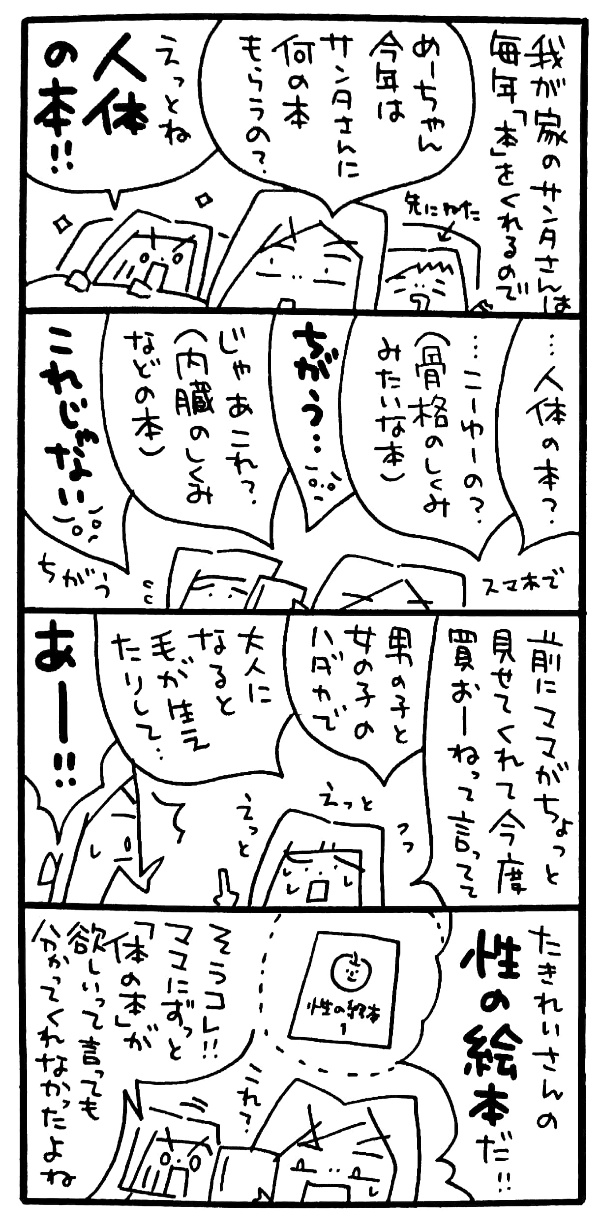 我が家のサンタさんは
毎年「本」をくれるので
めーちゃん
今年は
サンタさんに
何の本
もらうの？
先にねた
えっとね
人体
の本!!
…人体の本？
スマホで
…こーゆーの？
（骨格のしくみ
みたいな本）
ちがう…
じゃあこれ？
（内臓のしくみ
などの本）
これじゃない
ちがう
前にママがちょっと
見せてくれて今度
買おーねって言ってて
男の子と
女の子の
ハダカで
えっと
えっと
大人に
なると
毛が生え
たりして…
あー!!
たきれいさんの
性の絵本だ!!
性の絵本
1
これ？
そうコレ!!
ママにずっと
「体の本」が
欲しいって言っても
分かってくれなかったよね